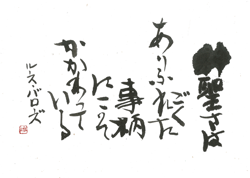 神聖さは
ごく
ありふれた
事柄
にこそ
かかわって
いる
ルース・バローズ